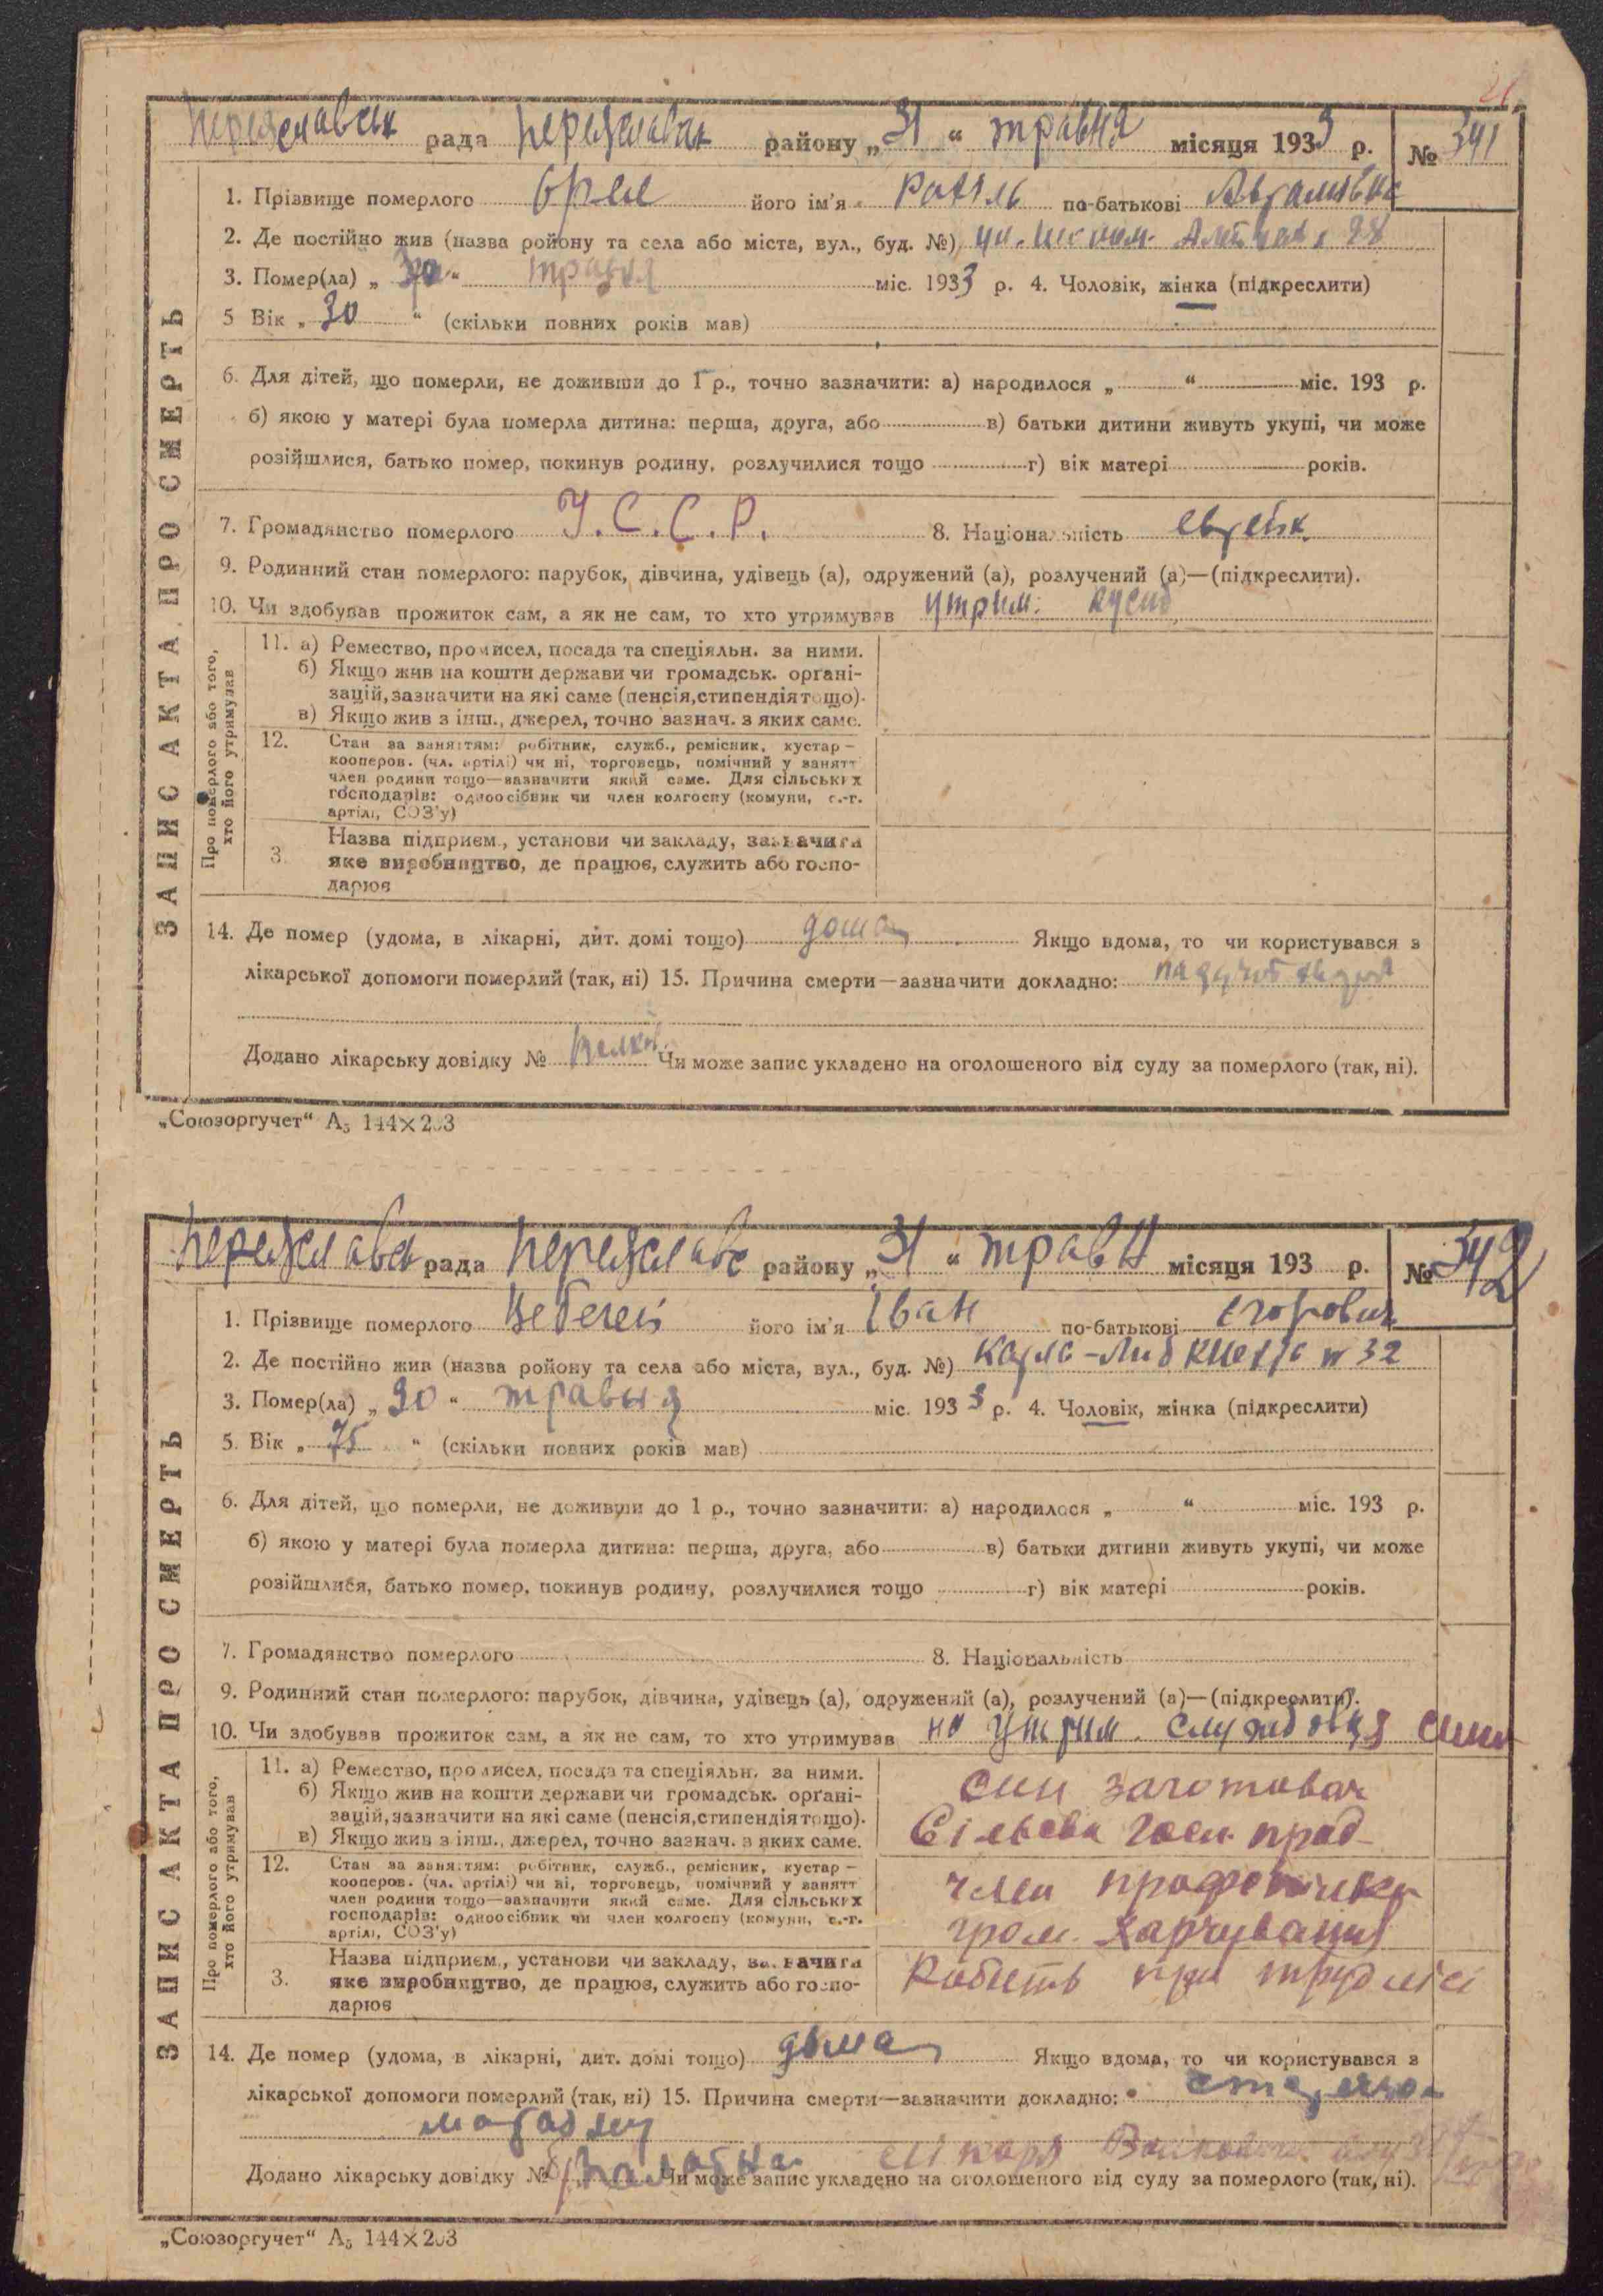 Переяславськ рада Переяславськ району „31“ травня місяця 1933 р. № 341
ЗАПИС АКТА ПРО СМЕРТЬ
1. Прізвище померлого Орел його ім'я Рахіль по-батькові
2. Де постійно жив (назва ройону та села або міста, вул., буд. №)
3. Помер(ла) „30“ травня міс. 1933 р. 4. Чоловік, жінка (підкреслити)
5 Вік „30“ (скільки повних років мав)
6. Для дітей, що померли, не доживши до 1 р., точно зазначити: а) народилося „ “ міс. 193 р.
б) якою у матері була померла дитина: перша, друга, або в) батьки дитини живуть укупі, чи може
розійшлися, батько помер, покинув родину, розлучилися тощо г) вік матері років.
7. Громадянство померлого У.С.С.Р. 8. Національність еврейк.
9. Родинний стан померлого: парубок, дівчина, удівець (а), одружений (а), розлучений (а)—(підкреслити).
10. Чи здобував прожиток сам, а як не сам, то хто утримував утрим.
Про померлого або того, хто його утримував
11. а) Ремество, промисел, посада та спеціяльн. за ними.
б) Якщо жив на кошти держави чи громадськ. органі-
зацій, зазначити на які саме (пенсія, стипендія тощо).
в) Якщо жив з інш., джерел, точно зазнач. з яких саме.
12. Стан за заняттям: робітник, служб., ремісник, кустар —
кооперов. (чл. артілі) чи ні, торговець, помічний у занятт
член родини тощо—зазначити який саме. Для сільських
господарів: одноосібник чи член колгоспу (комуни, с.-г.
артілі, СОЗ'у)
3. Назва підприєм., установи чи закладу, зазначити
яке виробництво, де працює, служить або госпо-
дарює
14. Де помер (удома, в лікарні, дит. домі тощо) дома Якщо вдома, то чи користувався з
лікарської допомоги померлий (так, ні) 15. Причина смерти—зазначити докладно:
Додано лікарську довідку № Чи може запис укладено на оголошеного від суду за померлого (так, ні).
„Союзоргучет“ А5 144×203
Переяславськ рада Переяславс району „31“ травн місяця 193 р. № 342
ЗАПИС АКТА ПРО СМЕРТЬ
1. Прізвище померлого його ім'я Іван по-батькові Єгорович
2. Де постійно жив (назва ройону та села або міста, вул., буд. №) Карла-Либкнехта № 32
3. Помер(ла) „30“ травня міс. 1933 р. 4. Чоловік, жінка (підкреслити)
5. Вік „75“ (скільки повних років мав)
6. Для дітей, що померли, не доживши до 1 р., точно зазначити: а) народилося „ “ міс. 193 р.
б) якою у матері була померла дитина: перша, друга, або в) батьки дитини живуть укупі, чи може
розійшлися, батько помер, покинув родину, розлучилися тощо г) вік матері років.
7. Громадянство померлого 8. Національність
9. Родинний стан померлого: парубок, дівчина, удівець (а), одружений (а), розлучений (а)—(підкреслити).
10. Чи здобував прожиток сам, а як не сам, то хто утримував на утрим. службовця сина
Про померлого або того, хто його утримував
11. а) Ремество, промисел, посада та спеціяльн. за ними.
б) Якщо жив на кошти держави чи громадськ. органі-
зацій, зазначити на які саме (пенсія, стипендія тощо).
в) Якщо жив з інш., джерел, точно зазнач. з яких саме.
син заготовач
госп. прод
12. Стан за заняттям: робітник, служб., ремісник, кустар —
кооперов. (чл. артілі) чи ні, торговець, помічний у занятт
член родини тощо—зазначити який саме. Для сільських
господарів: одноосібник чи член колгоспу (комуни, с.-г.
артілі, СОЗ'у)
член профспілки
гром. харчування
3. Назва підприєм., установи чи закладу, зазначити
яке виробництво, де працює, служить або госпо-
дарює
при
14. Де помер (удома, в лікарні, дит. домі тощо) дома Якщо вдома, то чи користувався з
лікарської допомоги померлий (так, ні) 15. Причина смерти—зазначити докладно:
Додано лікарську довідку № Чи може запис укладено на оголошеного від суду за померлого (так, ні).
„Союзоргучет“ А5 144×203